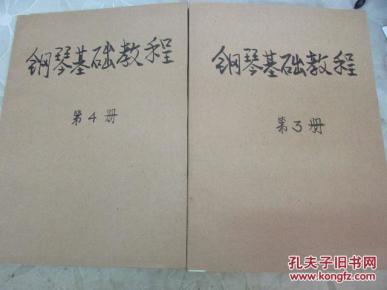 钢琴基础教程
第4册
钢琴基础教程
第3册
孔夫子旧书网